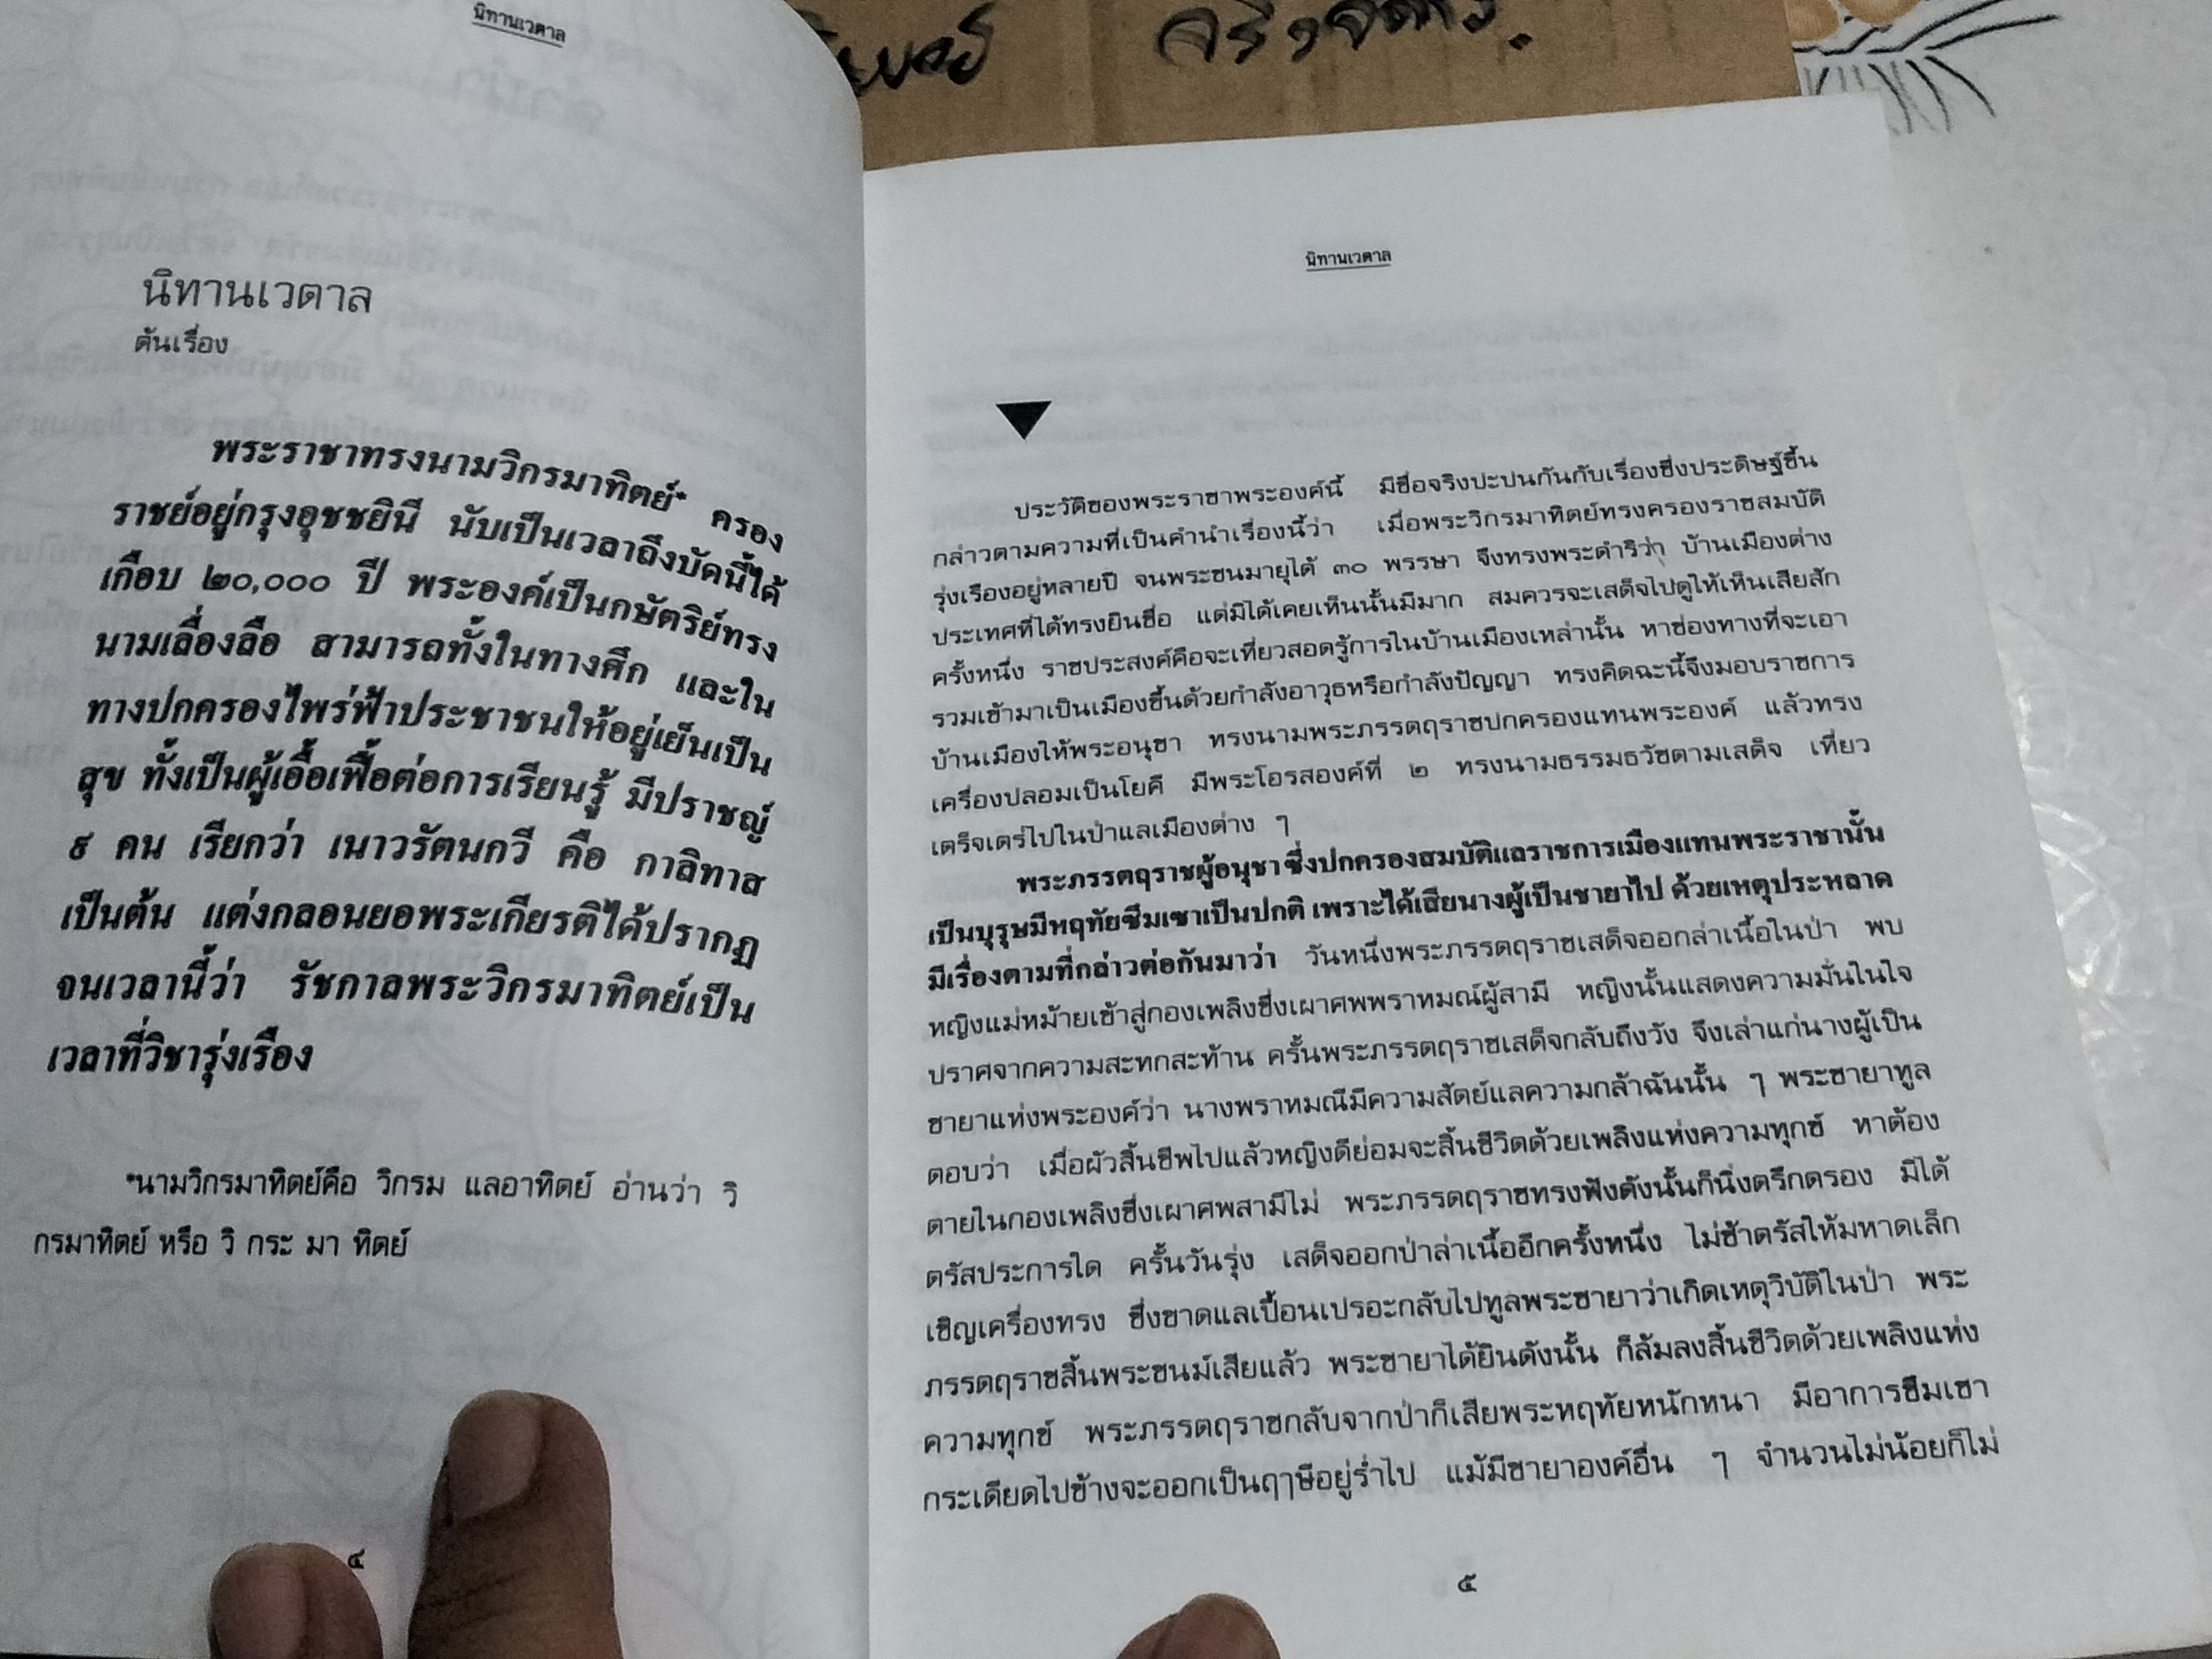 นิทานเวตาล
นิทานเวตาล
ต้นเรื่อง
พระราชาทรงนามวิกรมาทิตย์* ครอง
ราชย์อยู่กรุงอุชชยินี นับเป็นเวลาถึงบัดนี้ได้
เกือบ ๒๐,๐๐๐ ปี พระองค์เป็นกษัตริย์ทรง
นามเลื่องลือ สามารถทั้งในทางศึก และใน
ทางปกครองไพร่ฟ้าประชาชนให้อยู่เย็นเป็น
สุข ทั้งเป็นผู้เอื้อเฟื้อต่อการเรียนรู้ มีปราชญ์
๙ คน เรียกว่า เนาวรัตนกวี คือ กาลิทาส
เป็นต้น แต่งกลอนยอพระเกียรติได้ปรากฏ
จนเวลานี้ว่า รัชกาลพระวิกรมาทิตย์เป็น
เวลาที่วิชารุ่งเรือง
*นามวิกรมาทิตย์คือ วิกรม แลอาทิตย์ อ่านว่า วิ
กรมาทิตย์ หรือ วิ กระ มา ทิตย์
๔
นิทานเวตาล
ประวัติของพระราชาพระองค์นี้ มีชื่อจริงปะปนกันกับเรื่องซึ่งประดิษฐ์ขึ้น
กล่าวตามความที่เป็นคำนำเรื่องนี้ว่า เมื่อพระวิกรมาทิตย์ทรงครองราชสมบัติ
รุ่งเรืองอยู่หลายปี จนพระชนมายุได้ ๓๐ พรรษา จึงทรงพระดำริว่า บ้านเมืองต่าง
ประเทศที่ได้ทรงยินชื่อ แต่มิได้เคยเห็นนั้นมีมาก สมควรจะเสด็จไปดูให้เห็นเสียสัก
ครั้งหนึ่ง ราชประสงค์คือจะเที่ยวสอดรู้การในบ้านเมืองเหล่านั้น หาช่องทางที่จะเอา
รวมเข้ามาเป็นเมืองขึ้นด้วยกำลังอาวุธหรือกำลังปัญญา ทรงคิดฉะนี้จึงมอบราชการ
บ้านเมืองให้พระอนุชา ทรงนามพระภรรตฤราชปกครองแทนพระองค์ แล้วทรง
เครื่องปลอมเป็นโยคี มีพระโอรสองค์ที่ ๒ ทรงนามธรรมธวัชตามเสด็จ เที่ยว
เตร็จเตร่ไปในป่าแลเมืองต่าง ๆ
พระภรรตฤราชผู้อนุชา ซึ่งปกครองสมบัติแลราชการเมืองแทนพระราชานั้น
เป็นบุรุษมีหฤทัยซึมเซาเป็นปกติ เพราะได้เสียนางผู้เป็นชายาไป ด้วยเหตุประหลาด
มีเรื่องตามที่กล่าวต่อกันมาว่า วันหนึ่งพระภรรตฤราชเสด็จออกล่าเนื้อในป่า พบ
หญิงแม่หม้ายเข้าสู่กองเพลิงซึ่งเผาศพพราหมณ์ผู้สามี หญิงนั้นแสดงความมั่นในใจ
ปราศจากความสะทกสะท้าน ครั้นพระภรรตฤราชเสด็จกลับถึงวัง จึงเล่าแก่นางผู้เป็น
ชายาแห่งพระองค์ว่า นางพราหมณีมีความสัตย์แลความกล้าฉันนั้น ๆ พระชายาทูล
ตอบว่า เมื่อผัวสิ้นชีพไปแล้วหญิงดีย่อมจะสิ้นชีวิตด้วยเพลิงแห่งความทุกข์ หาต้อง
ตายในกองเพลิงซึ่งเผาศพสามีไม่ พระภรรตฤราชทรงฟังดังนั้นก็นิ่งตรึกตรอง มิได้
ตรัสประการใด ครั้นวันรุ่ง เสด็จออกป่าล่าเนื้ออีกครั้งหนึ่ง ไม่ช้าตรัสให้มหาดเล็ก
เชิญเครื่องทรง ซึ่งขาดแลเปื้อนเปรอะกลับไปทูลพระชายาว่าเกิดเหตุวิบัติในป่า พระ
ภรรตฤราชสิ้นพระชนม์เสียแล้ว พระชายาได้ยินดังนั้น ก็ล้มลงสิ้นชีวิตด้วยเพลิงแห่ง
ความทุกข์ พระภรรตฤราชกลับจากป่าก็เสียพระหฤทัยหนักหนา มีอาการซึมเซา
กระเดียดไปข้างจะออกเป็นฤๅษีอยู่ร่ำไป แม้มีชายาองค์อื่น ๆ จำนวนไม่น้อยก็ไม่
๕